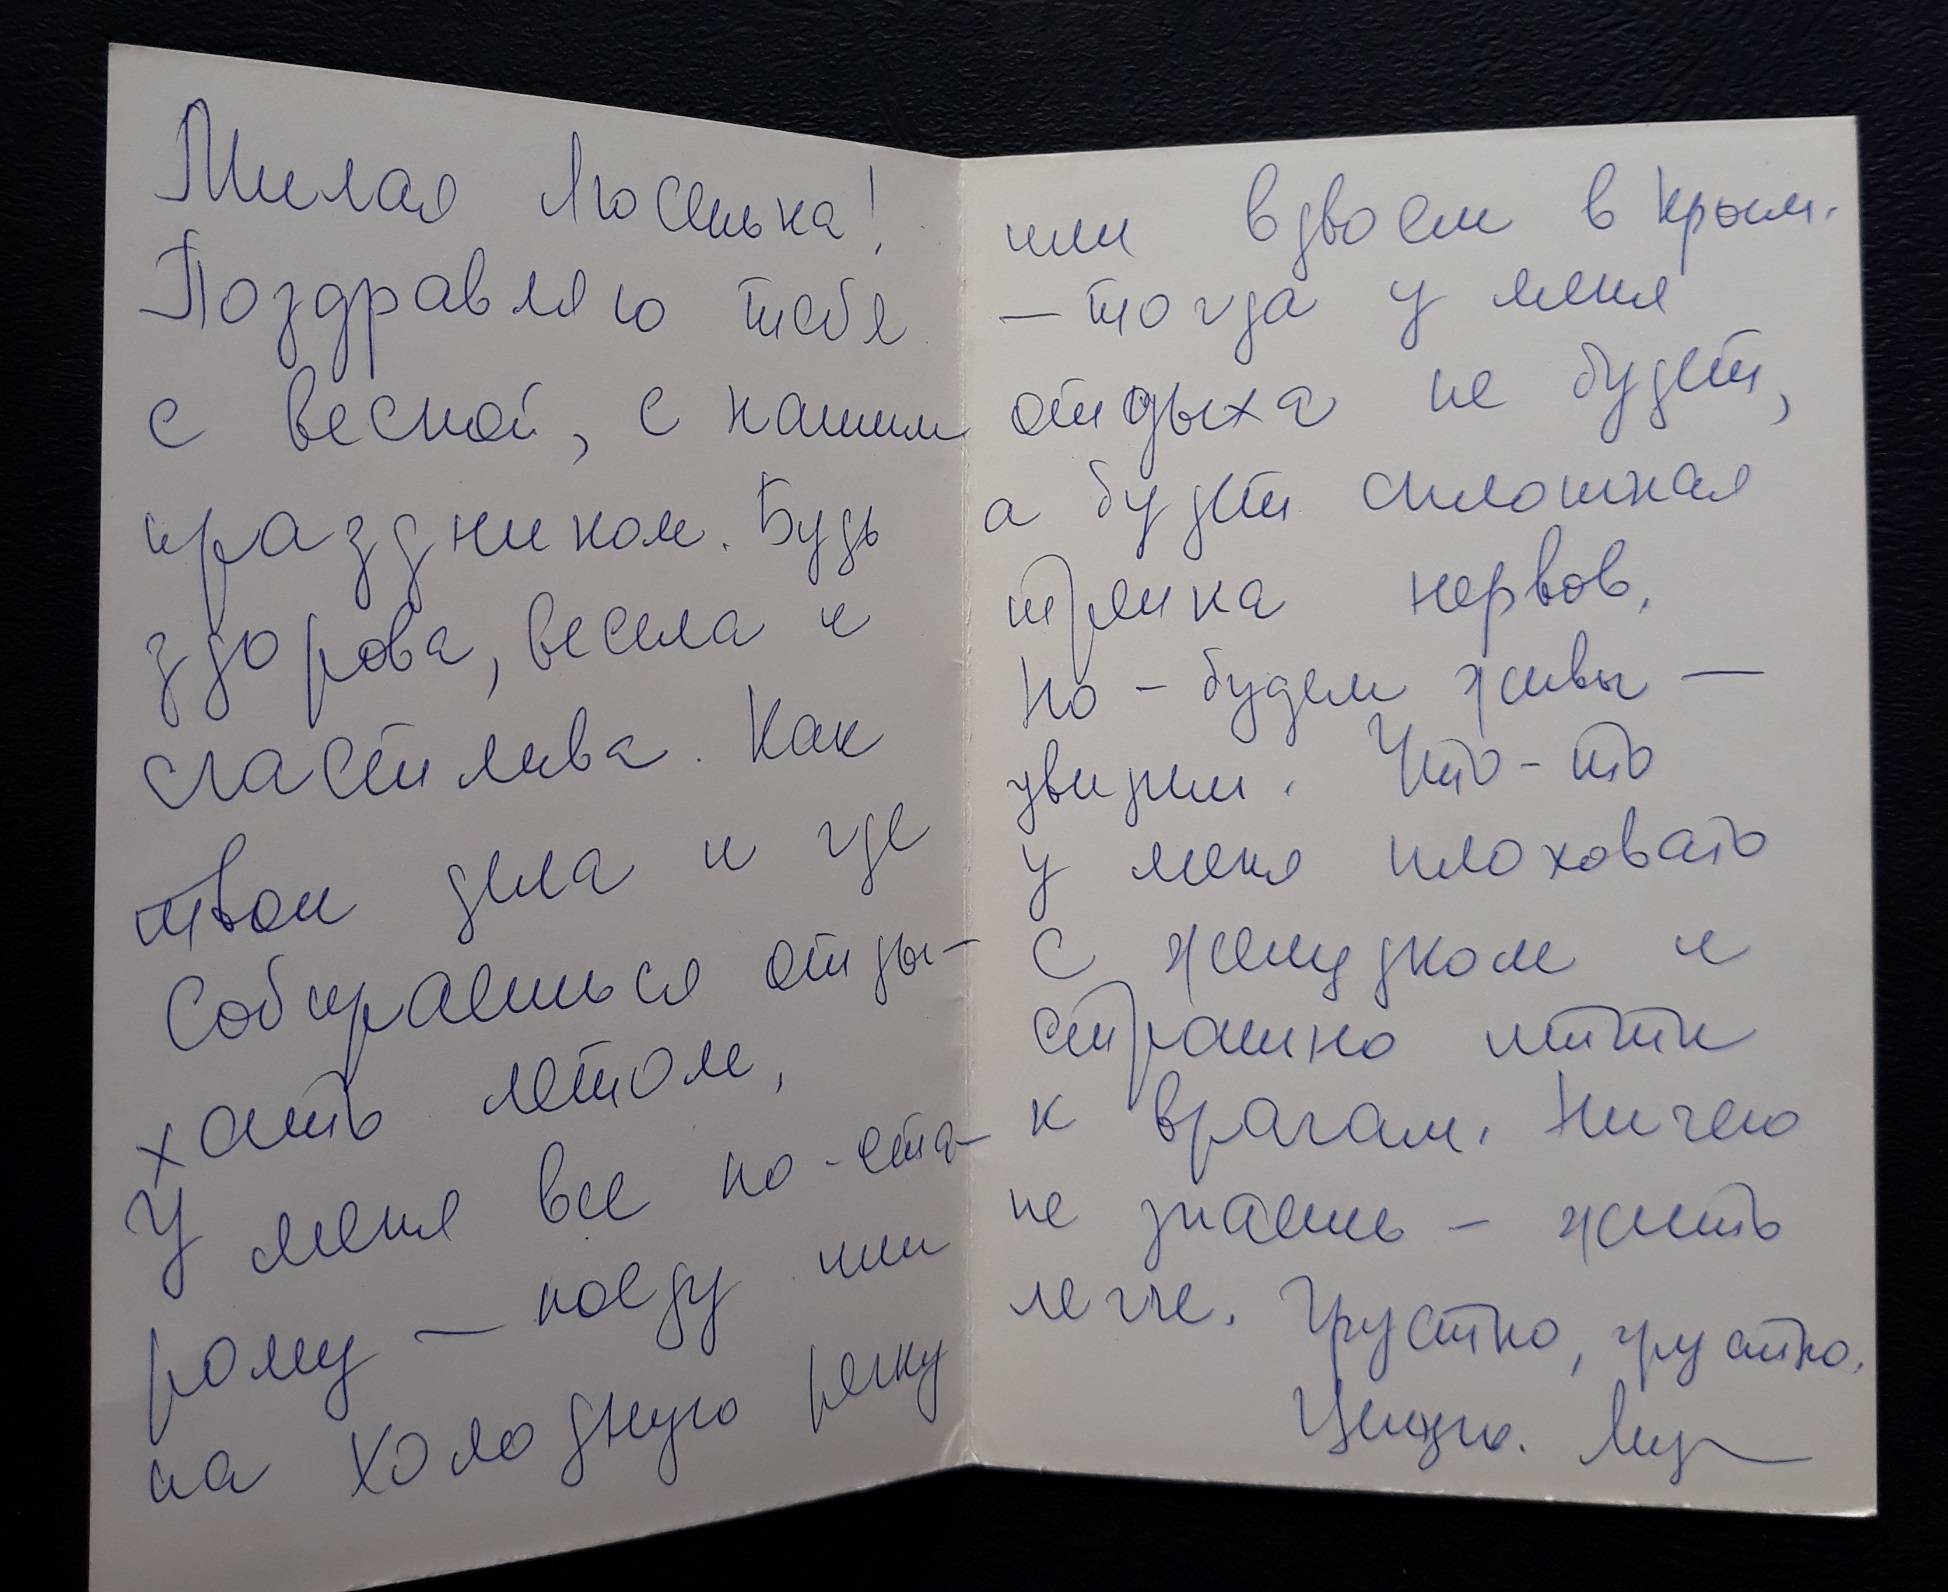 Милая Люсенька!
Поздравляю тебя
с весной, с нашим
праздником. Будь
здорова, весела и
счастлива. Как
твои дела и где
собираешься отды-
хать летом,
У меня все по-ста-
рому — поеду или
на холодную речку
или вдвоем в Крым.
— тогда у меня
отдыха не будет,
а будет сплошная
трепка нервов.
Но - будем живы —
увидим. Что-то
у меня плоховато
с желудком и
страшно идти
к врагам. Ничего
не знаешь - жить
легче. Грустно, грустно.
Целую.